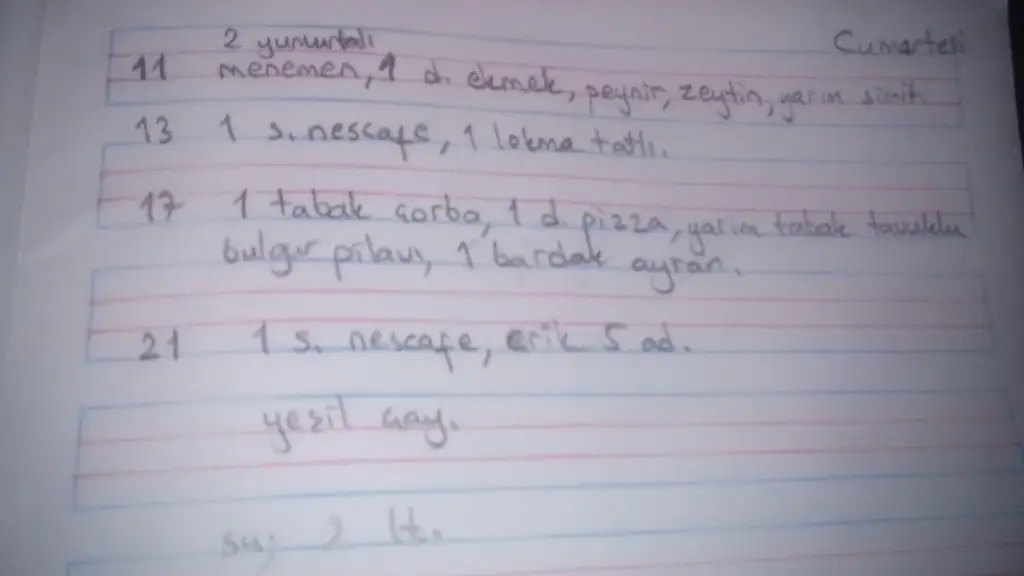 Cumartesi
2 yumurtalı
11 menemen, 1 d. ekmek, peynir, zeytin, yarım simit.
13 1 s. nescafe, 1 lokma tatlı.
17 1 tabak çorba, 1 d. pizza, yarım tabak tavuklu
bulgur pilavı, 1 bardak ayran.
21 1 s. nescafe, erik 5 ad.
yeşil çay.
su; 2 lt.